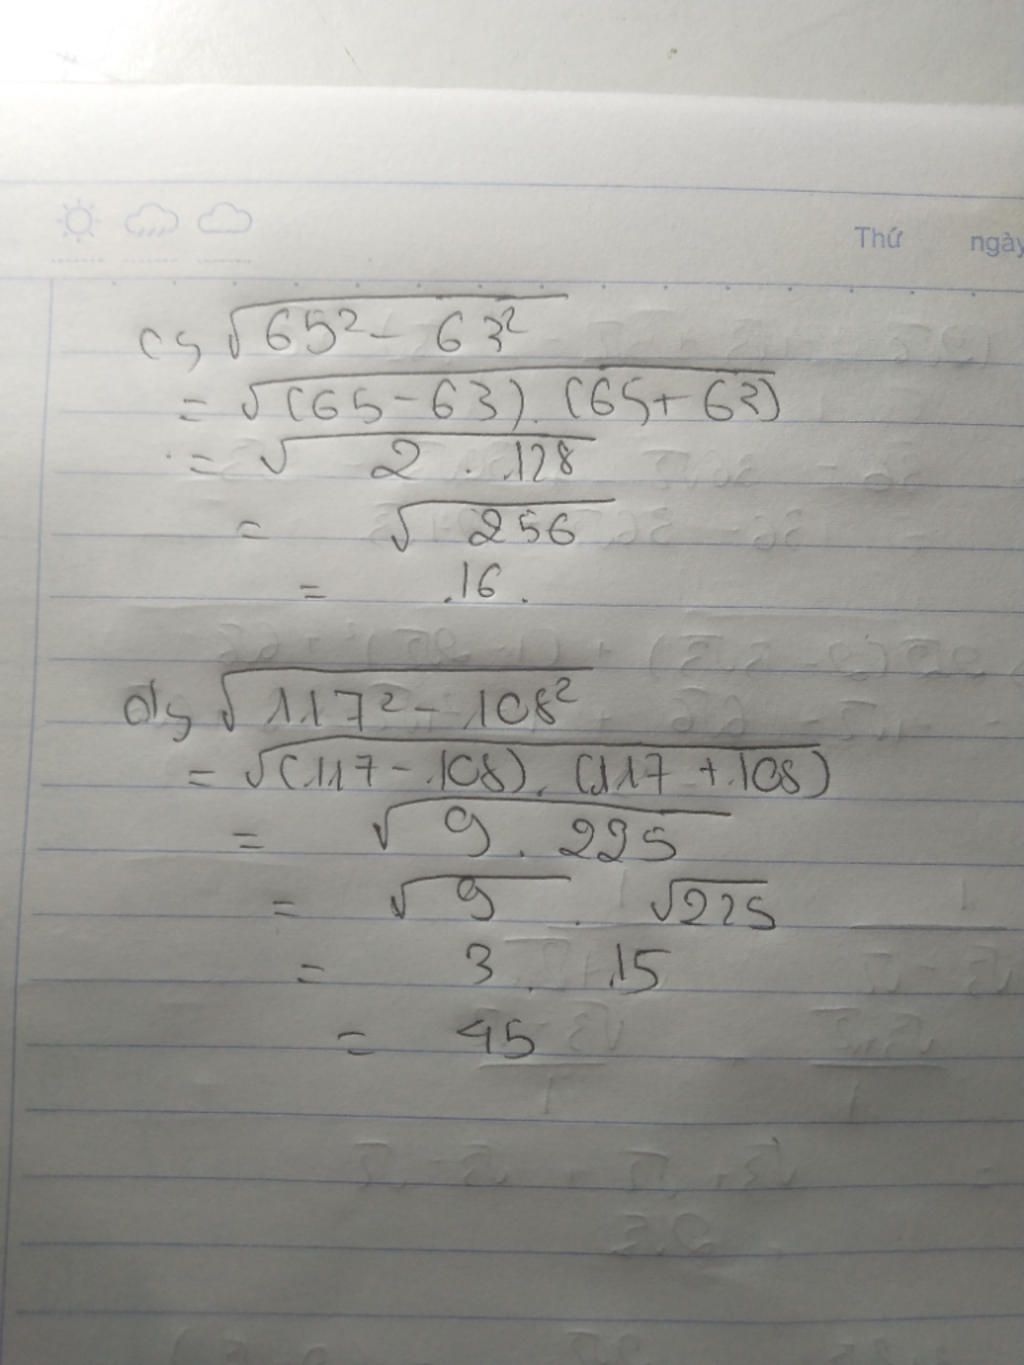 Thứ ngày
c, √65² - 63²
= √(65 - 63) . (65 + 63)
= √2 . 128
= √256
= 16.
d, √117² - 108²
= √(117 - 108) . (117 + 108)
= √9 . 225
= √9 . √225
= 3 . 15
= 45